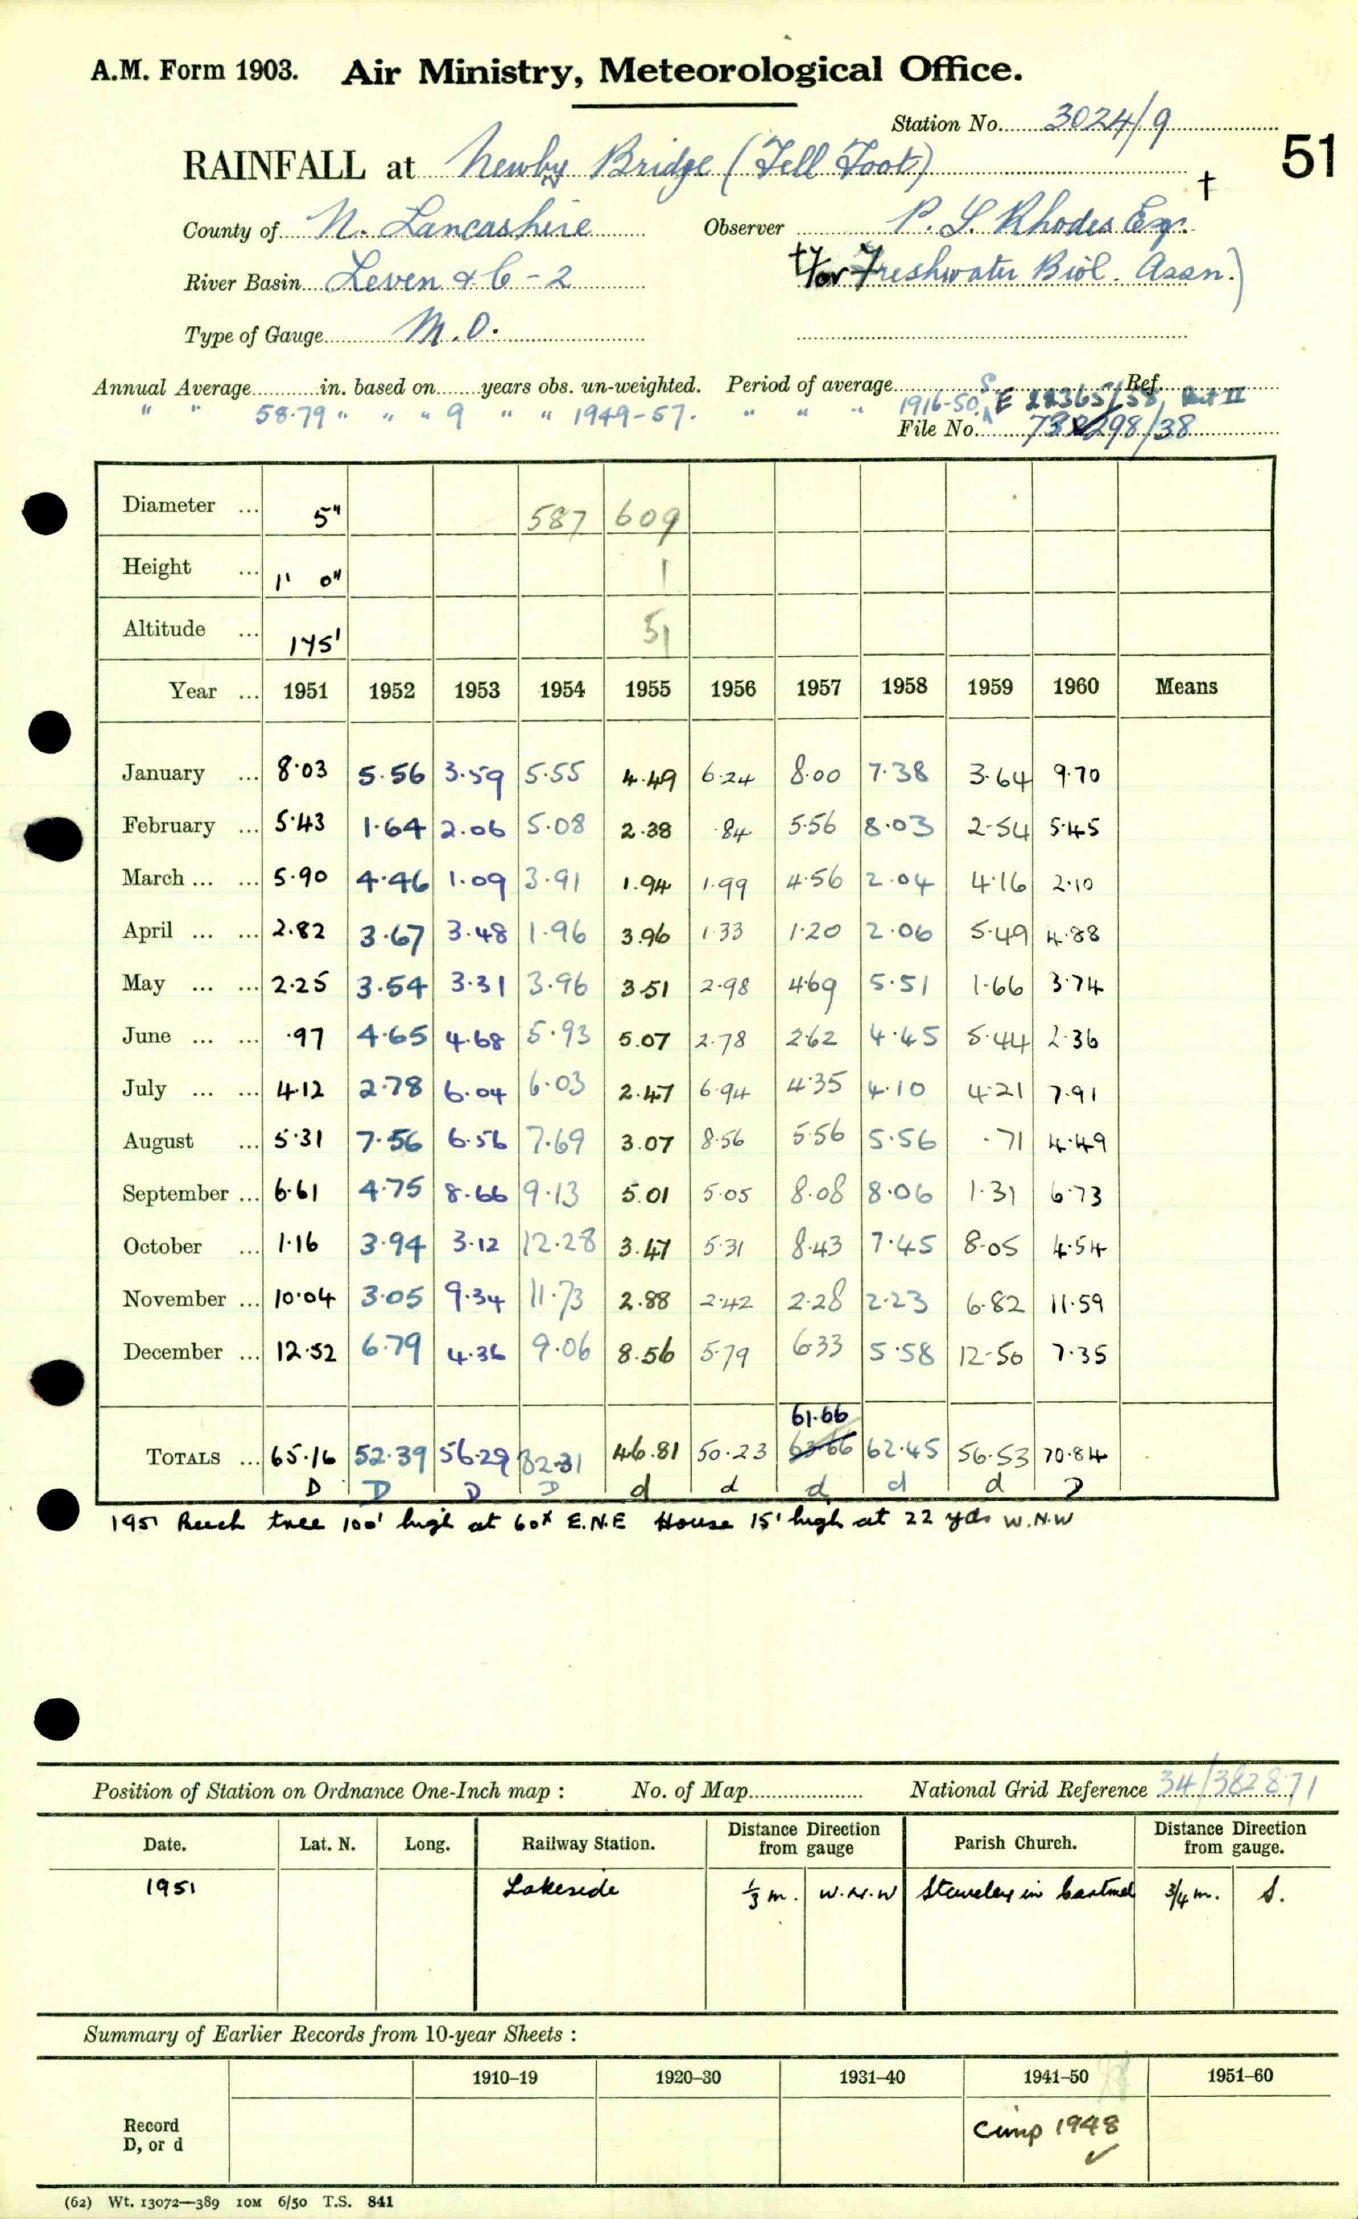 A.M. Form 1903. Air Ministry, Meteorological Office.
Station No. 3024/9
51
RAINFALL at Newby Bridge (Fell Foot) †
County of N. Lancashire Observer P. S. Rhodes Esq.
River Basin Leven & C-2 († for Freshwater Biol. Assn.)
Type of Gauge M.O.
Annual Average in. based on years obs. un-weighted. Period of average Ref.
" " 58.79 " " " 9 " " 1949-57. " " " 1916-50. E 28365/58, Part II
File No. 732298/38
Diameter ... 5" 587 609
Height ... 1' 0" 1
Altitude ... 175' 51
Year ... 1951 1952 1953 1954 1955 1956 1957 1958 1959 1960 Means
January ... 8.03 5.56 3.59 5.55 4.49 6.24 8.00 7.38 3.64 9.70
February ... 5.43 1.64 2.06 5.08 2.38 .84 5.56 8.03 2.54 5.45
March ... ... 5.90 4.46 1.09 3.91 1.94 1.99 4.56 2.04 4.16 2.10
April ... ... 2.82 3.67 3.48 1.96 3.96 1.33 1.20 2.06 5.49 4.88
May ... ... 2.25 3.54 3.31 3.96 3.51 2.98 4.69 5.51 1.66 3.74
June ... ... .97 4.65 4.68 5.93 5.07 2.78 2.62 4.45 5.44 2.36
July ... ... 4.12 2.78 6.04 6.03 2.47 6.94 4.35 4.10 4.21 7.91
August ... 5.31 7.56 6.56 7.69 3.07 8.56 5.56 5.56 .71 4.49
September ... 6.61 4.75 8.66 9.13 5.01 5.05 8.08 8.06 1.31 6.73
October ... 1.16 3.94 3.12 12.28 3.47 5.31 8.43 7.45 8.05 4.54
November ... 10.04 3.05 9.34 11.73 2.88 2.42 2.28 2.23 6.82 11.59
December ... 12.52 6.79 4.36 9.06 8.56 5.79 6.33 5.58 12.50 7.35
61.66
TOTALS ... 65.16 52.39 56.29 82.31 46.81 50.23 63.66 62.45 56.53 70.84
D D D D d d d d d D
1951 Beech tree 100' high at 60x E.N.E House 15' high at 22 yds W.N.W
Position of Station on Ordnance One-Inch map : No. of Map National Grid Reference 34/382871
Date. Lat. N. Long. Railway Station. Distance Direction from gauge Parish Church. Distance Direction from gauge.
1951 Lakeside 1/3 m. W.N.W Staveley in Cartmel 3/4 m. S.
Summary of Earlier Records from 10-year Sheets :
1910–19 1920–30 1931–40 1941–50 1951–60
Record
D, or d
Cmp 1948 ✓
(62) Wt. 13072—389 10M 6/50 T.S. 841